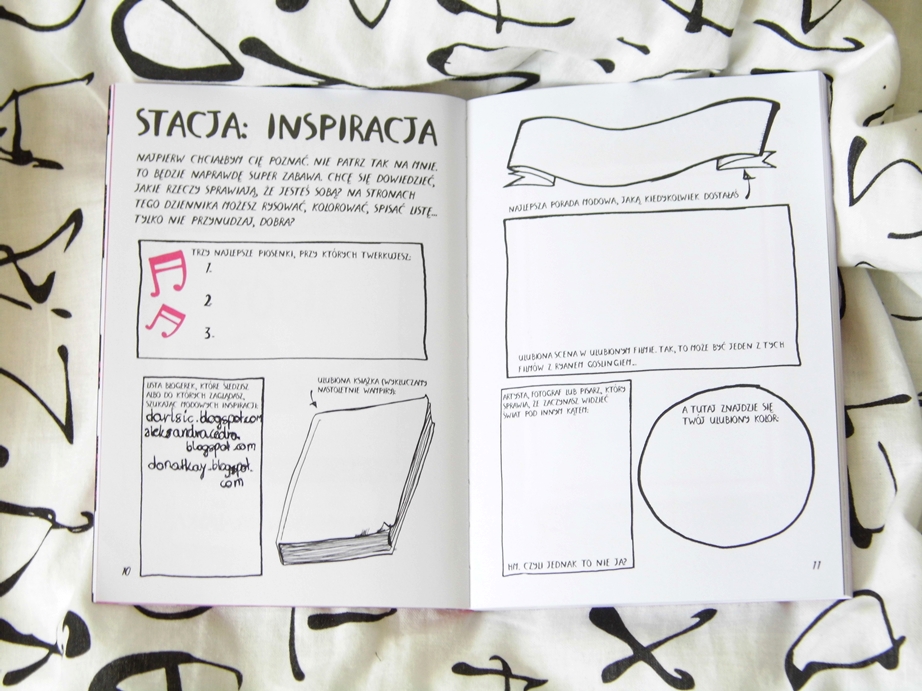 STACJA: INSPIRACJA
NAJPIERW CHCIAŁBYM CIĘ POZNAĆ. NIE PATRZ TAK NA MNIE.
TO BĘDZIE NAPRAWDĘ SUPER ZABAWA. CHCĘ SIĘ DOWIEDZIEĆ,
JAKIE RZECZY SPRAWIAJĄ, ŻE JESTEŚ SOBĄ? NA STRONACH
TEGO DZIENNIKA MOŻESZ RYSOWAĆ, KOLOROWAĆ, SPISAĆ LISTĘ...
TYLKO NIE PRZYNUDZAJ, DOBRA?
TRZY NAJLEPSZE PIOSENKI, PRZY KTÓRYCH TWERKUJESZ:
1.
2
3.
LISTA BLOGEREK, KTÓRE ŚLEDZISZ
ALBO DO KTÓRYCH ZAGLĄDASZ,
SZUKAJĄC MODOWYCH INSPIRACJI:
darlsic.blogspot.com
blogspot.com
donatkay.blogspot.
com
ULUBIONA KSIĄŻKA (WYKLUCZAM
NASTOLETNIE WAMPIRY):
10
NAJLEPSZA PORADA MODOWA, JAKĄ KIEDYKOLWIEK DOSTAŁAŚ
ULUBIONA SCENA W ULUBIONYM FILMIE. TAK, TO MOŻE BYĆ JEDEN Z TYCH
FILMÓW Z RYANEM GOSLINGIEM...
ARTYSTA, FOTOGRAF LUB PISARZ, KTÓRY
SPRAWIA, ŻE ZACZYNASZ WIDZIEĆ
ŚWIAT POD INNYM KĄTEM:
HM, CZYLI JEDNAK TO NIE JA?
A TUTAJ ZNAJDZIE SIĘ
TWÓJ ULUBIONY KOLOR:
11